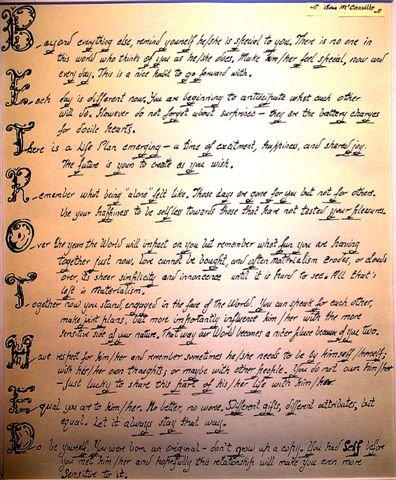 © Ron McConville
Beyond everything else, remind yourself he/she is special to you. There is no one in
this world who thinks of you as he/she does. Make him/her feel special, now and
every day. This is a nice habit to go forward with.
Each day is different now. You are beginning to anticipate what each other
will do. However do not forget about surprises - they are the battery charges
for docile hearts.
There is a Life Plan emerging - a time of excitment, happiness, and shared joy.
The future is yours to create as you wish.
Remember what being "alone" felt like. Those days are gone for you but not for others.
Use your happiness to be selfless towards those that have not tasted your pleasures.
Over the years the World will impact on you but remember what fun you are having
together just now. Love cannot be bought, and often materialism erodes, or clouds
over, its sheer simplicity and innoncence until it is hard to see. All that's
left is Materialism.
Together now you stand, engaged in the face of the World. You can speak for each other,
make joint plans, but more importantly influence him/her with the more
sensitive side of your nature. That way our World becomes a nicer place because of you two.
Have respect for him/her and remember sometimes he/she needs to be by himself/herself;
with her/his own thoughts; or maybe with other people. You do not own him/her
- just lucky to share this part of his/her life with him/her.
Equal you are to him/her. No better, no worse. Different gifts, different attributes, but
equal. Let it always stay that way.
Do be yourself. You were born an original - don't grow up a copy. You had Self before
you met him/her and hopefully this relationship will make you even more
Sensitive to it.